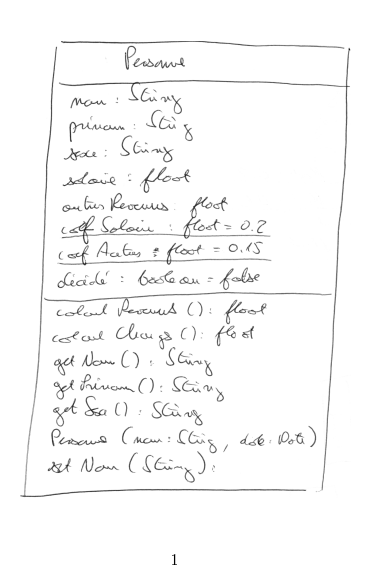 Personne
nom : String
prénom : String
sexe : String
salaire : float
autres Revenus : float
coef Salaire : float = 0.2
coef Autres : float = 0.15
décédé : boolean = false
calcul Revenus () : float
calcul Charge () : float
get Nom () : String
get Prénom () : String
get Sexe () : String
Personne (nom : String, date : Date)
set Nom (String) :
1